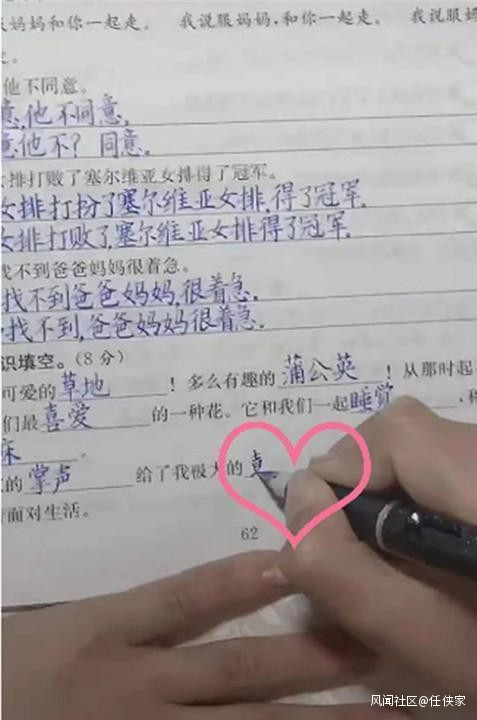 妈妈和你一起走。 我说服妈妈,和你一起走。 我说服妈
他不同意。
意,他不同意。
意他不?同意。
女排打败了塞尔维亚女排得了冠军。
女排打扮了塞尔维亚女排,得了冠军.
女排打败了,塞尔维亚女排得了冠军.
找不到爸爸妈妈很着急。
找不到爸爸妈妈,很着急.
找不到,爸爸妈妈很着急.
识填空。(8分)
可爱的草地!多么有趣的蒲公英!从那时起
们最喜爱的一种花。它和我们一起睡觉,
床。
的掌声给了我极大的
面对生活。
62
风闻社区@任侠家